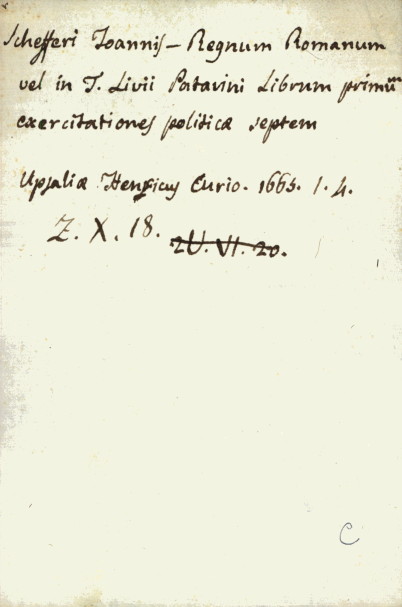 Schefferi Joannis – Regnum Romanum
vel in T. Livii Patavini Librum primũ
exercitationes politicæ septem
Upsaliæ Henricus Curio. 1665. 1. 4.
Z. X. 18. 2U. VI. 20.
C